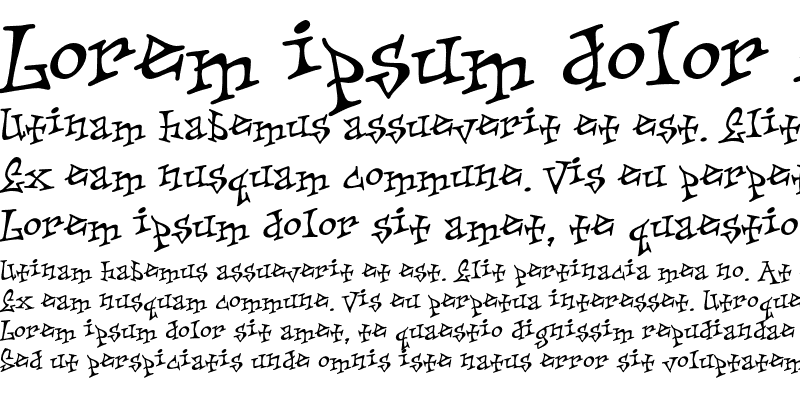 Lorem ipsum dolor
Utinam habemus assueverit et est. Elit
Ex eam nusquam commune. Vis eu perpet
Lorem ipsum dolor sit amet, te quaestio
Utinam habemus assueverit et est. Elit pertinacia mea no. At
Ex eam nusquam commune. Vis eu perpetua interesset. Utroque
Lorem ipsum dolor sit amet, te quaestio dignissim repudiandae
Sed ut perspiciatis unde omnis iste natus error sit voluptatem